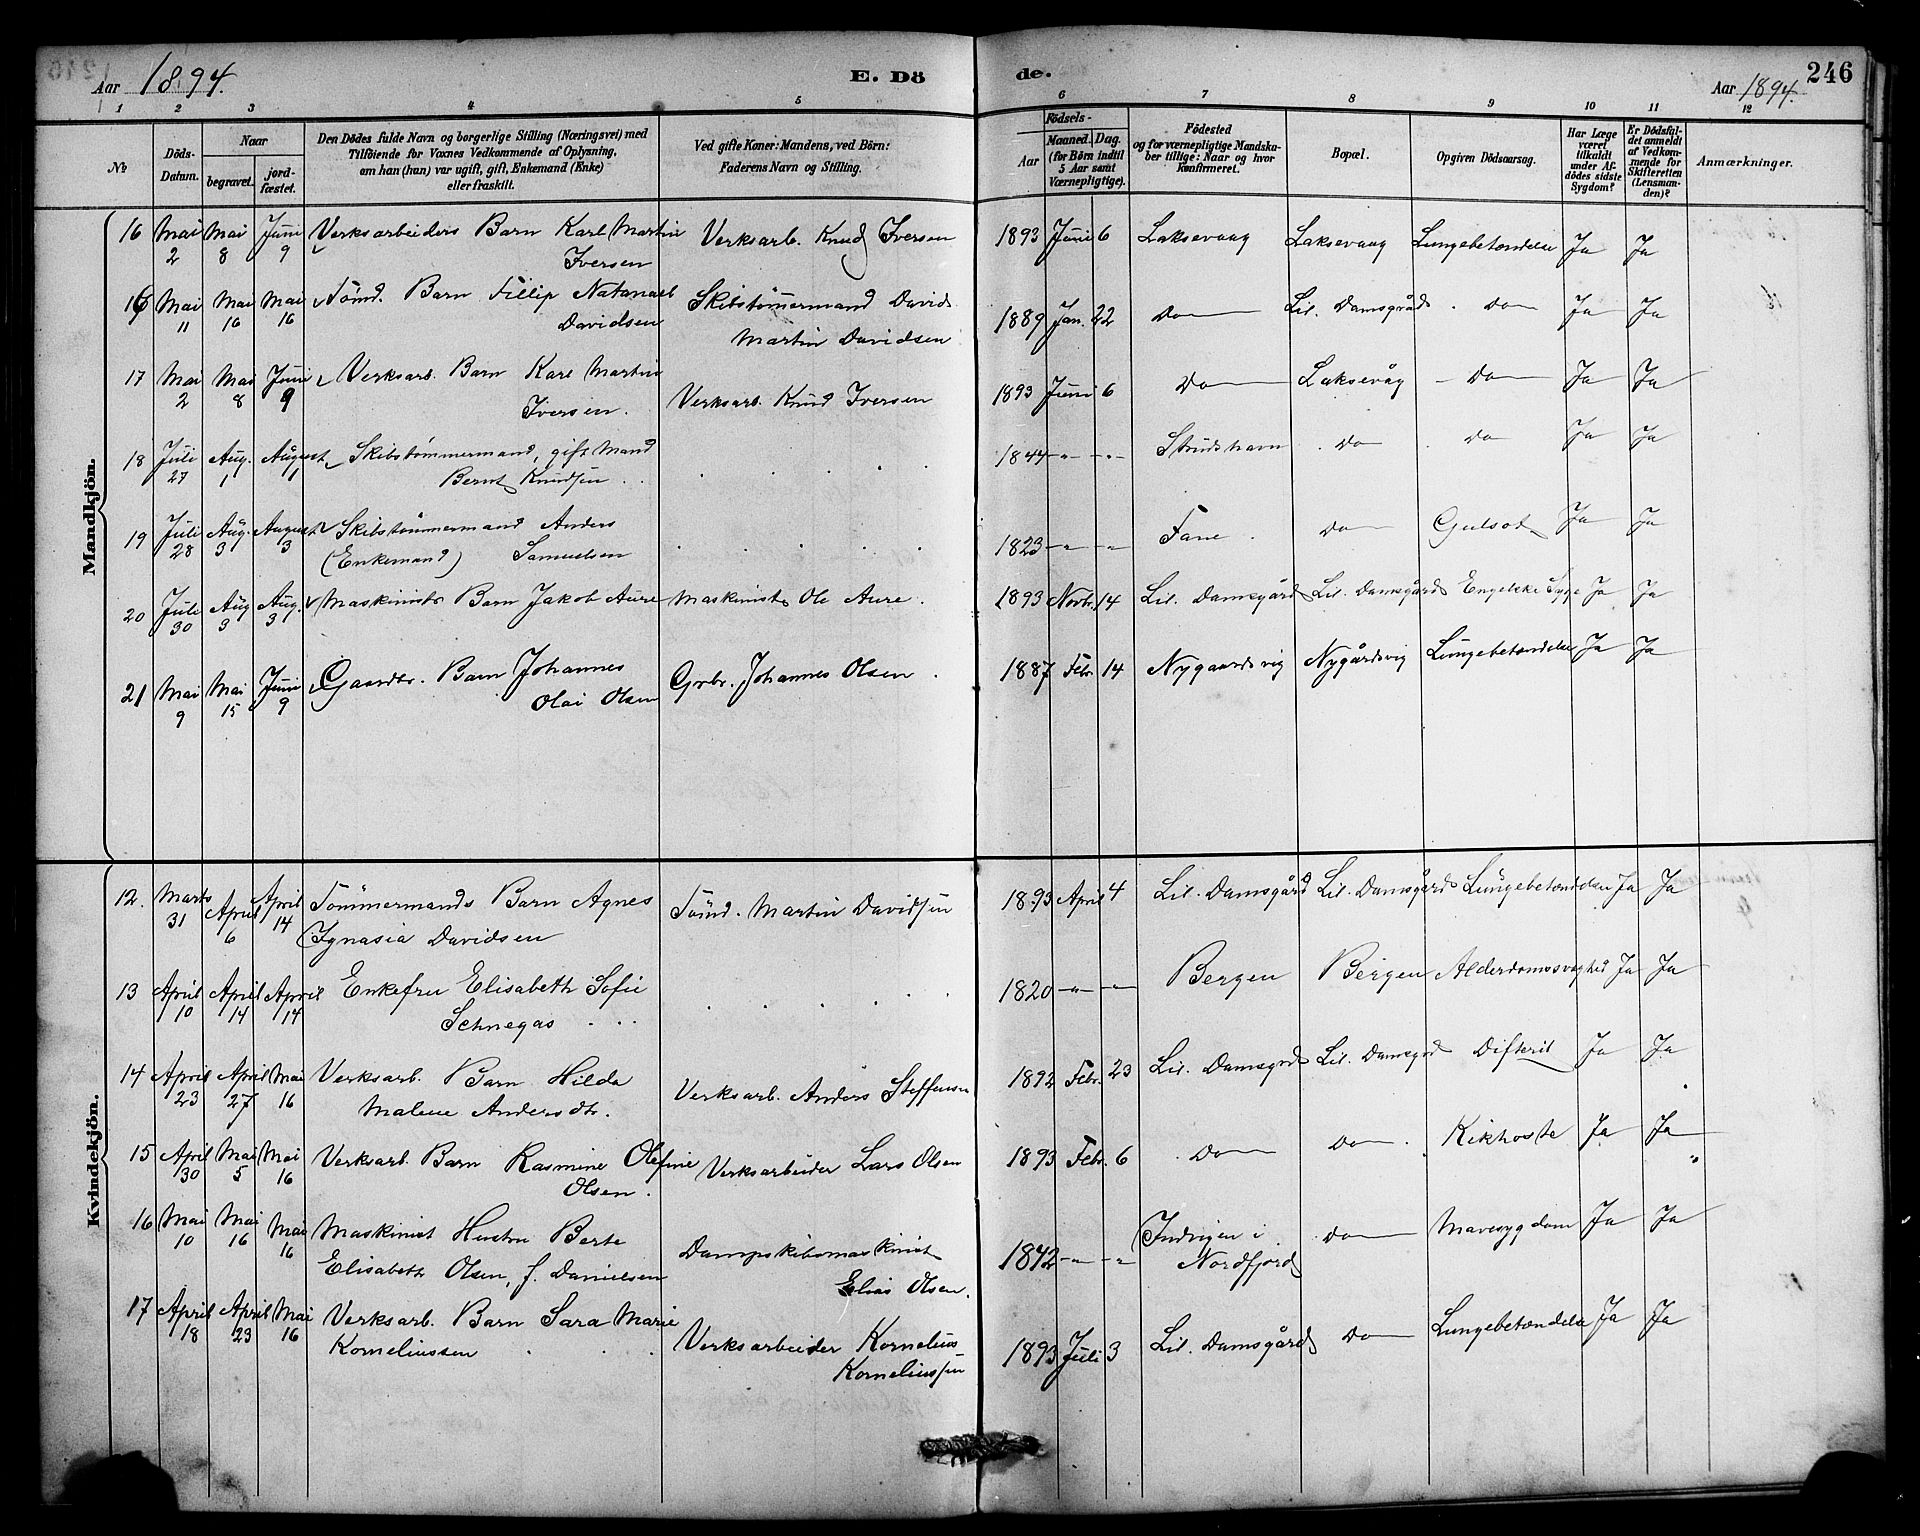 Aar 1894. E. Dö
de. Aar 1894. 246
1 2 3 4 5 6 7 8 9 10 11 12
No
Döds-Datum.
Naar
begravet.
jord-fæstet.
Den Dödes fulde Navn og borgerlige Stilling (Næringsvei) med
Tilföiende for Voxnes Vedkommende af Oplysning,
om han (hun) var ugift, gift, Enkemand (Enke)
eller fraskilt.
Ved gifte Koner: Mandens, ved Börn:
Faderens Navn og Stilling.
Födsels-
Aar
Maaned. Dag.
(for Börn indtil
5 Aar samt
Værnepligtige).
Födested
og for værnepligtige Mandska-
ber tillige: Naar og hvor
konfirmeret.
Bopæl.
Opgiven Dödsaarsag.
Har Læge
været
tilkaldt
under Af-
dödes sidste
Sygdom?
Er Dödsfal-
det anmeldt
af Vedkom-
mende for
Skifteretten
(Lensman-
den)?
Anmærkninger.
Mandkjön.
16 Mai 2 Mai 8 Juni 9 Verksarbeiders Barn Karl Martin Verksarb. Knud Iversen 1893 Juni 6 Laksevaag Laksevaag Lungebetændelse Ja Ja
Iversen
16 Mai 11 Mai 16 Mai 16 Tömd. Barn Fillip Natanael Skibstömmermand David 1889 Jan. 22 Do Lil. Damsgård Do Ja Ja
Davidsen Martin Davidsen
17 Mai 2 Mai 8 Juni 9 Verksarb. Barn Karl Martin Verksarb. Knud Iversen 1893 Juni 6 Do Laksevåg Do Ja Ja
Iversen.
18 Juli 27 Aug. 1 August 1 Skibstømmermand, gift Mand 1844 -"- -"- Strudshavn Do Do Ja Ja
Bernt Knudsen
19 Juli 28 Aug. 3 August 3 Skibstömmermand Anders 1823 -"- -"- Fane. Do Gulsot Ja Ja
(Enkemand) Samuelsen
20 Juli 30 Aug 3 Aug. 3 Maskinists Barn Jakob Aure Maskinist Ole Aure. 1893 Novbr. 14 Lil. Damsgård Lil. Damsgård Engelske Syge Ja Ja
21 Mai 9 Mai 15 Juni 9 Gaardbr. Barn Johannes Grbr. Johannes Olsen 1887 Febr. 14 Nygaardsvig Nygårdsvig Lungebetændelse Ja Ja
Olai Olsen
Kvindekjön.
12. Marts 31 April 6 April 14 Tömmermands Barn Agnes Tömd. Martin Davidsen 1893 April 4 Lil. Damsgård Lil. Damsgård Lungebetændelse Ja Ja
Ignasia Davidsen
13 April 10 April 14 April 14 Enkefru Elisabeth Sofie 1820 -"- -"- Bergen Bergen Alderdomssvaghed Ja Ja
Schnegas
14 April 23 April 27 Mai 16 Verksarb. Barn Hilda Verksarb. Anders Steffensen 1892 Febr. 23 Lil. Damsgrd Lil. Damsgrd Difterit Ja Ja
Malene Andersdtr.
15 April 30 Mai 5 Mai 16 Verksarb. Barn Rasmine Olefine Verksarbeider Lars Olsen 1893 Febr. 6 Do Do Kikhoste Ja Ja
Olsen.
16 Mai 10 Mai 16 Mai 16 Maskinist Hustru Berte Dampskibsmaskinist 1842 -"- -"- Indvigen i Do Mavesygdom Ja Ja
Elisabeth Olsen, f. Danielsen Elias Olsen. Nordfjord
17 April 18 April 23 Mai 16 Verksarb. Barn Sara Marie Verksarbeider Kornelius 1893 Juli 3 Lil. Damsgård Do Lungebetændelse Ja Ja
Korneliussen Korneliussen